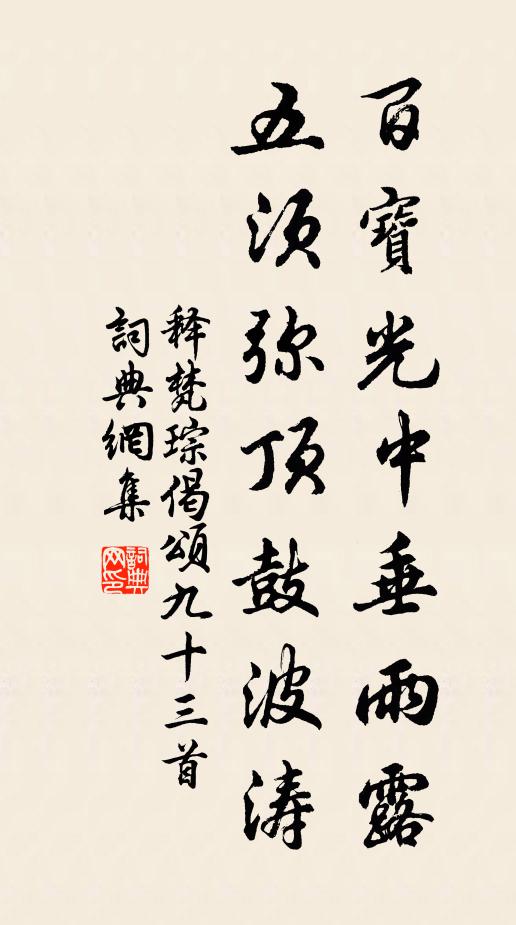 百寶光中垂雨露
五须弥顶鼓波涛
释梵琮偈頌九十三首
詞典網集
詞典网印